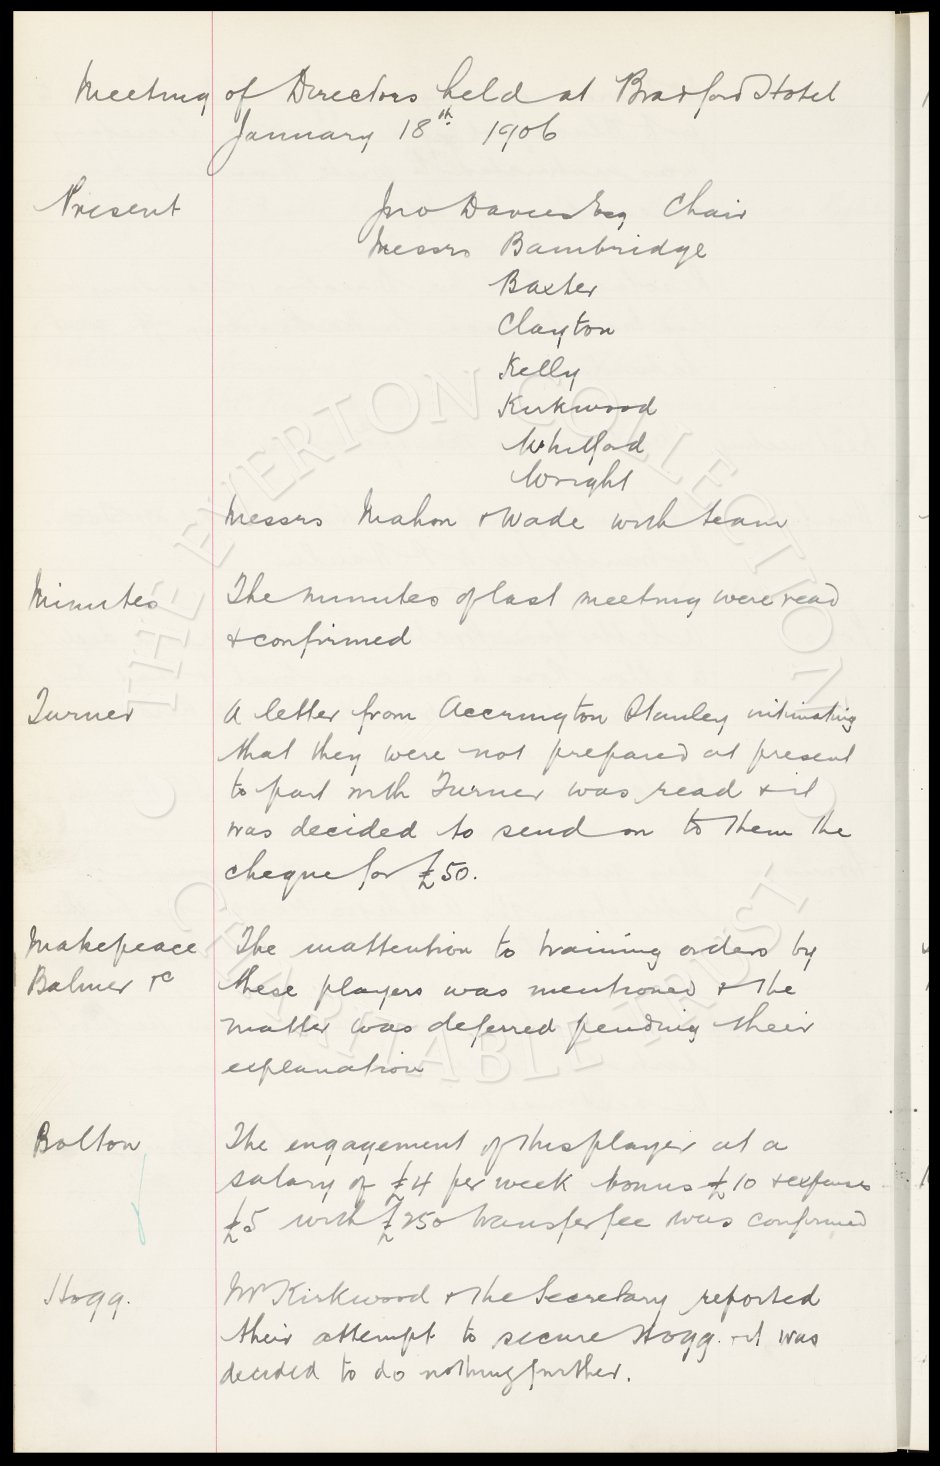 Meeting of Directors held at Bradford Hotel
January 18th 1906
Present Jno Davies Esq Chair
Messrs Bainbridge
Baxter
Clayton
Kelly
Kirkwood
Whitford
Wright
Messrs Mahon & Wade with team
Minutes The minutes of last meeting were read
& confirmed
Turner A letter from Accrington Stanley intimating
that they were not prepared at present
to part with Turner was read & it
was decided to send on to them the
cheque for £50.
Makepeace The inattention to training orders by
Balmer &c these players was mentioned & the
matter was deferred pending their
explanation
Bolton The engagement of this player at a
salary of £4 per week bonus £10 & expenses
£5 with £250 transfer fee was confirmed
Hogg. Mr Kirkwood & the Secretary reported
their attempt to secure Hogg. & it was
decided to do nothing further.
THE EVERTON COLLECTION
CHARITABLE TRUST